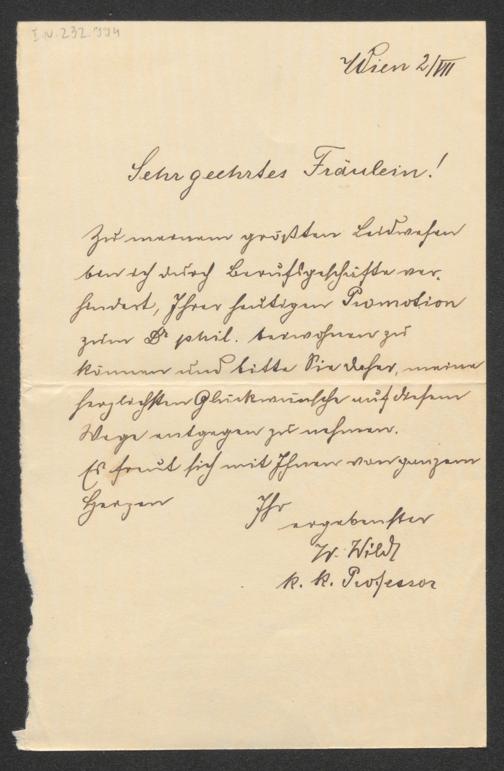 I.N. 232.994
Wien 2/VII
Sehr geehrtes Fräulein!
Zu meinem größten Leidwesen
bin ich durch Berufsgeschäfte ver-
hindert, Ihrer heutigen Promotion
zum Dr phil. beiwohnen zu
können und bitte Sie daher, meine
herzlichsten Glückwünsche auf diesem
Wege entgegen zu nehmen.
Es freut sich mit Ihnen von ganzem
Herzen Ihr
ergebenster
W. Wildt
k. k. Professor